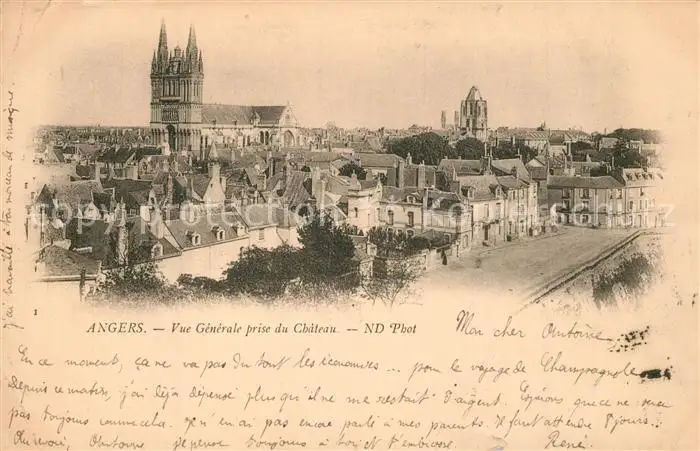 ANGERS. — Vue Générale prise du Château. — ND Phot
1
Mon cher Antoine
En ce moment, ça ne va pas du tout les économies ... pour le voyage de Champagnole
Depuis ce matin, j'ai déjà dépensé plus qu'il ne me restait d'argent. Espérons que ce ne sera
pas toujours comme cela. Je n'en ai pas encore parlé à mes parents. Il faut attendre
Au revoir, Antoine je pense toujours à toi et t'embrasse. René
j'ai travaillé à ton morceau de musique